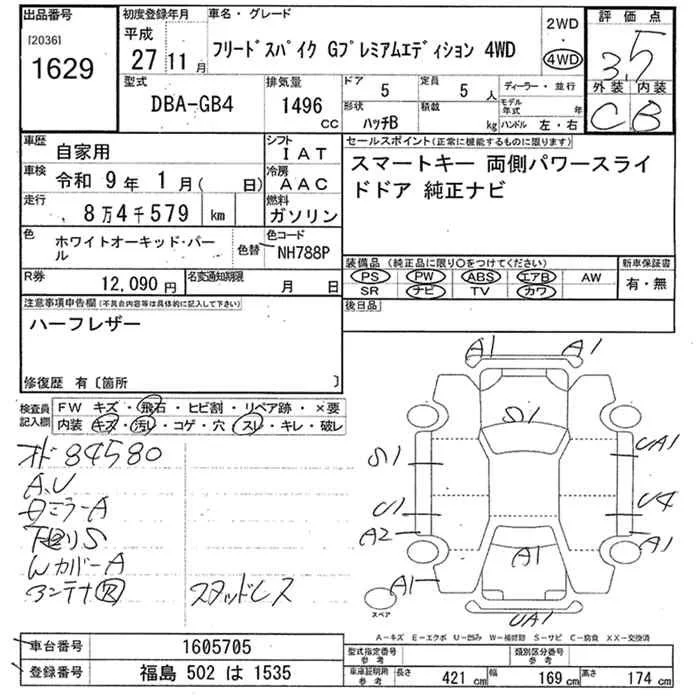 出品番号
[2036]
1629
初度登録年月
平成
27 11 月
車名・グレード
フリードスパイク Gプレミアムエディション 4WD
2WD
・
4WD
評価点
3.5
外装 内装
C B
型式
DBA-GB4
排気量
1496
CC
ドア
5
定員
5 人
形状
ハッチB
積載
kg
ディーラー・並行
モデル年式 年
ハンドル 左・右
車歴
自家用
シフト
IAT
車検
令和 9年 1月( 日)
冷房
AAC
走行
8万4千579 km
燃料
ガソリン
色
ホワイトオーキッド・パール
色替
色コード
NH788P
R券
12,090 円
名変通知期限
月 日
セールスポイント(正常に機能するものに限ります)
スマートキー 両側パワースライ
ドドア 純正ナビ
装備品 (純正品に限り○をつけてください)
PS PW ABS エアB AW
SR ナビ TV カワ
新車保証書
有・無
後日品
注意事項申告欄(不具合内容等は具体的に記入して下さい)
ハーフレザー
修復歴 有〔箇所 〕
検査員
記入欄
FW キズ・飛石・ヒビ割・リペア跡・×要
内装・キズ・汚し・コゲ・穴・スレ・キレ・破レ
オド 84580
A.U
ミラーA
下廻りS
WカバーA
アンテナ
スタッドレス
A1 A1
S1
S1 UA1
U1 U4
A2 A1 A1
A1
UA1
スペア
A-キズ E-エクボ U-凹み W-補修跡 S-サビ C-腐食 XX-交換済
車台番号
1605705
登録番号
福島 502 は 1535
型式指定番号
参考
類別区分番号
参考
車庫証明用
参考
長さ
421 cm
幅
169 cm
高さ
174 cm